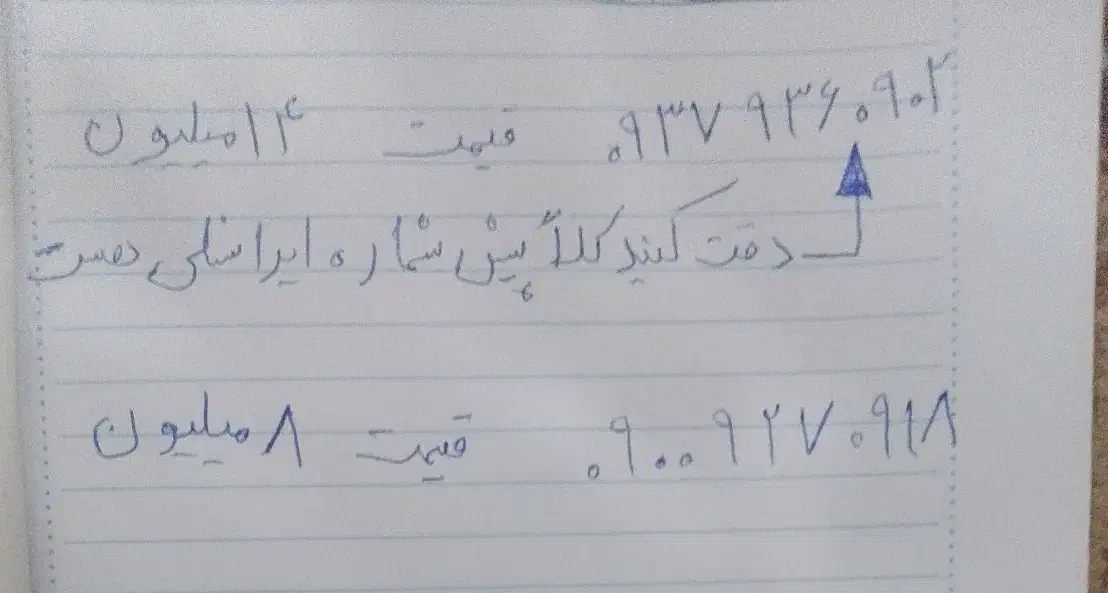 ۰۹۳۷ ۹۳۶ ۰۹۰۲ قیمت ۱۴ میلیون
دقت کنید کلاً پیش شماره ایرانسلی هست
۰۹۰۰ ۹۲۷ ۰۹۱۸ قیمت ۸ میلیون